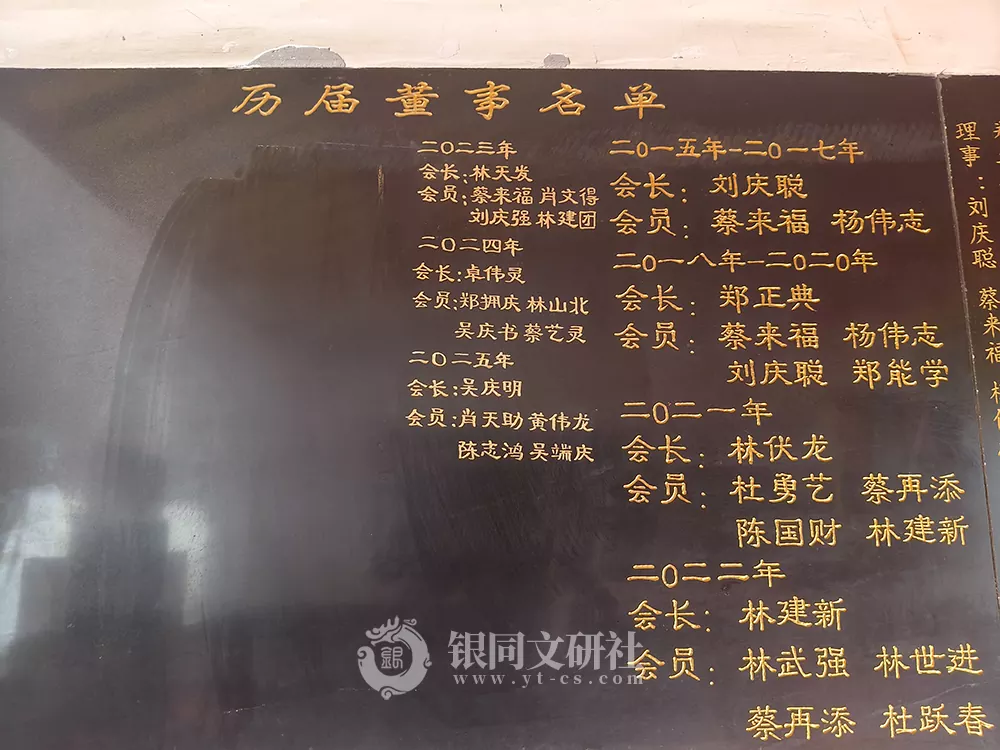 历届董事名单
二〇一五年-二〇一七年
会长：刘庆聪
会员：蔡来福 杨伟志
二〇一八年-二〇二〇年
会长：郑正典
会员：蔡来福 杨伟志
刘庆聪 郑能学
二〇二一年
会长：林伏龙
会员：杜勇艺 蔡再添
陈国财 林建新
二〇二二年
会长：林建新
会员：林武强 林世进
蔡再添 杜跃春
二〇二三年
会长：林天发
会员：蔡来福 肖文得
刘庆强 林建团
二〇二四年
会长：卓伟灵
会员：郑拥庆 林山北
吴庆书 蔡艺灵
二〇二五年
会长：吴庆明
会员：肖天助 黄伟龙
陈志鸿 吴端庆
理事：刘庆聪 蔡来福
银同文研社
www.yt-cs.com